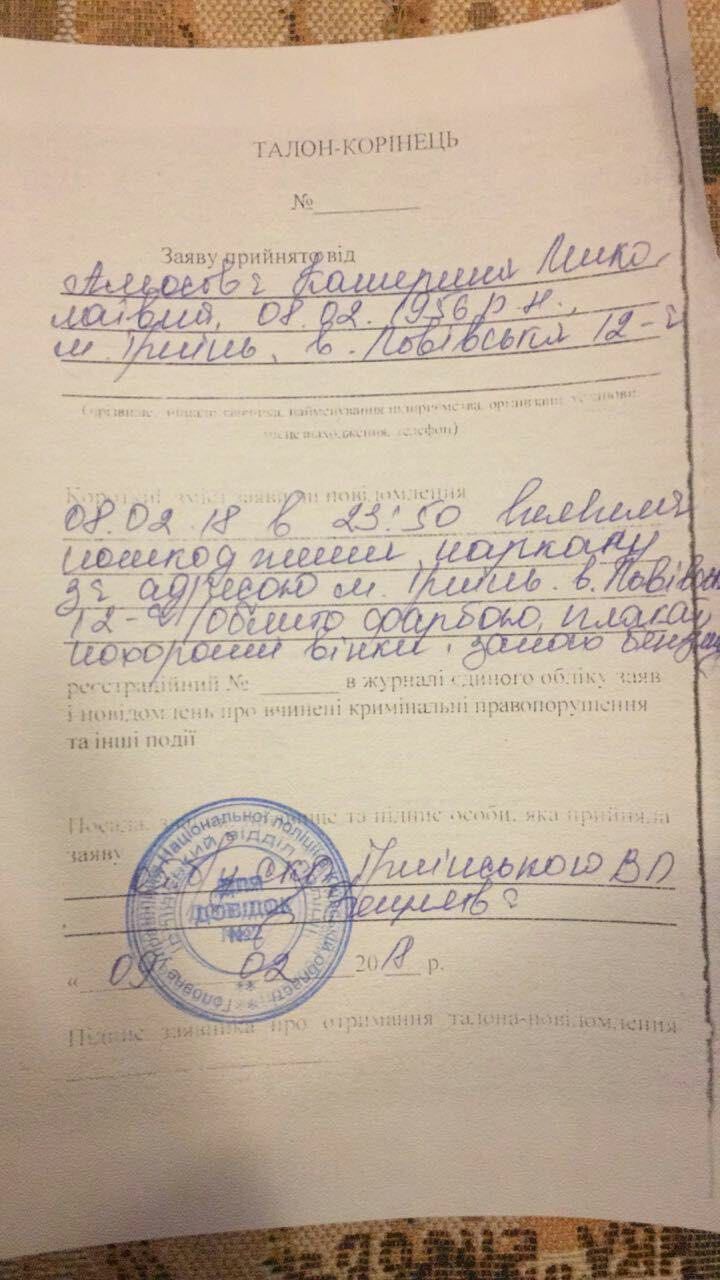 ТАЛОН-КОРІНЕЦЬ
№
Заяву прийнято від
Катерина Мико
лаївна, 08.02.1956 р.н.,
м. Ірпінь, в. 12-г
(прізвище, ініціали заявника, найменування підприємства, організації, установи
місце знаходження, телефон)
Короткий зміст заяви чи повідомлення
08.02.18 в 23:50 виявила
пошкодження паркану
за адресою м. Ірпінь. в.
12-г облито фарбою, плакат,
похоронні вінки,
реєстраційний № в журналі єдиного обліку заяв
і повідомлень про вчинені кримінальні правопорушення
та інші події
Посада, та підпис особи, яка прийняла
заяву
Ірпінського ВП
Головне управління Національної поліції Київській області
Ірпінський відділ поліції
ДЛЯ
ДОВІДОК
№2
" 09 02 2018 р.
Підпис заявника про отримання талона-повідомлення